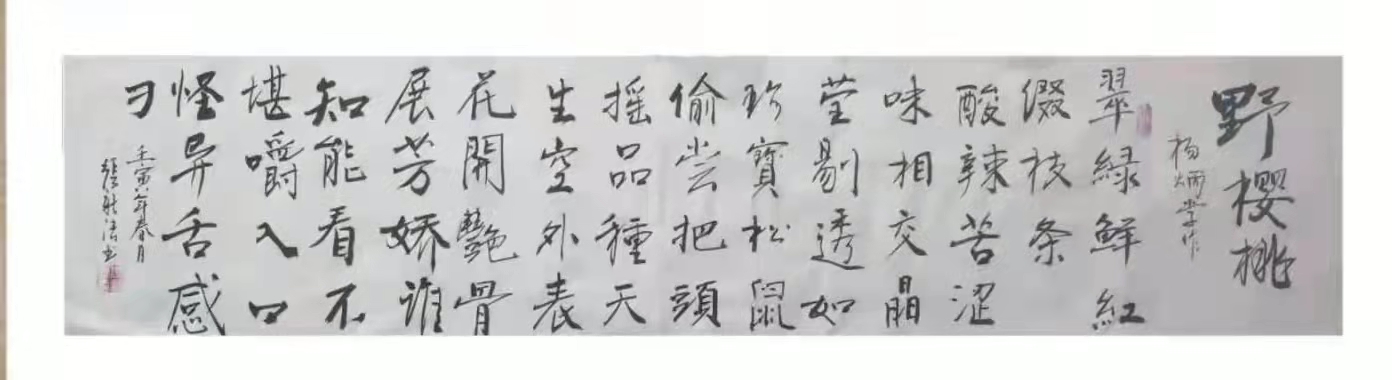 野樱桃
杨炳堂作
翠緑鲜红
缀枝条
酸辣苦涩
味相交晶
莹剔透如
珍寳松鼠
偷尝把頭
摇品種天
生空外表
花開艶骨
展芳娇谁
知能看不
堪嚼入口
怪异舌感
刁
壬寅年春月